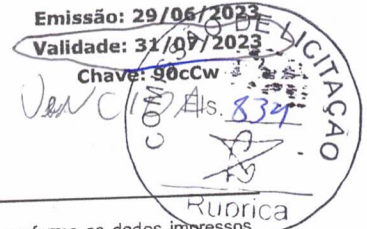 Emissão: 29/06/2023
Validade: 31/07/2023
Chave: 90cCw
VENCIDA
COMISSÃO DE LICITAÇÃO
Fls. 834
Rubrica
dados impressos